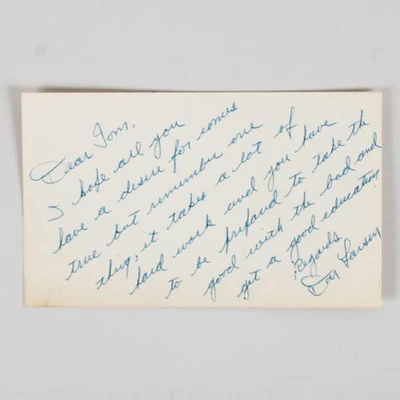 Dear Tom,
I hope all you
have a desire for comes
true but remember one
thing, it takes a lot of
hard work and you have
to be prepared to take the
good with the bad and
get a good education!
Regards
Don Larsen